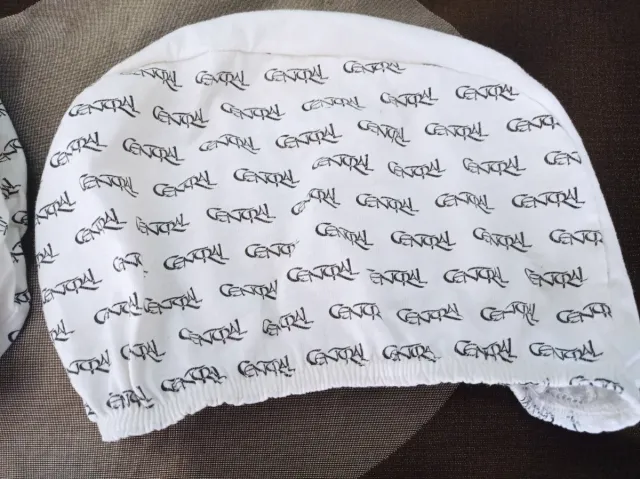 CENTRAL CENTRAL CENTRAL CENTRAL
CENTRAL CENTRAL CENTRAL CENTRAL CENTRAL CENTRAL
CENTRAL CENTRAL CENTRAL CENTRAL CENTRAL CENTRAL
CENTRAL CENTRAL CENTRAL CENTRAL CENTRAL CENTRAL
CENTRAL CENTRAL CENTRAL CENTRAL CENTRAL CENTRAL
CENTRAL CENTRAL CENTRAL CENTRAL CENTRAL
CENTRAL CENTRAL CENTRAL CENTRAL CENTRAL
CENTRAL CENTRAL CENTRAL CENTRAL CENTRAL
CENTRAL CENTRAL CENTRAL CENTRAL CENTRAL CENTRAL